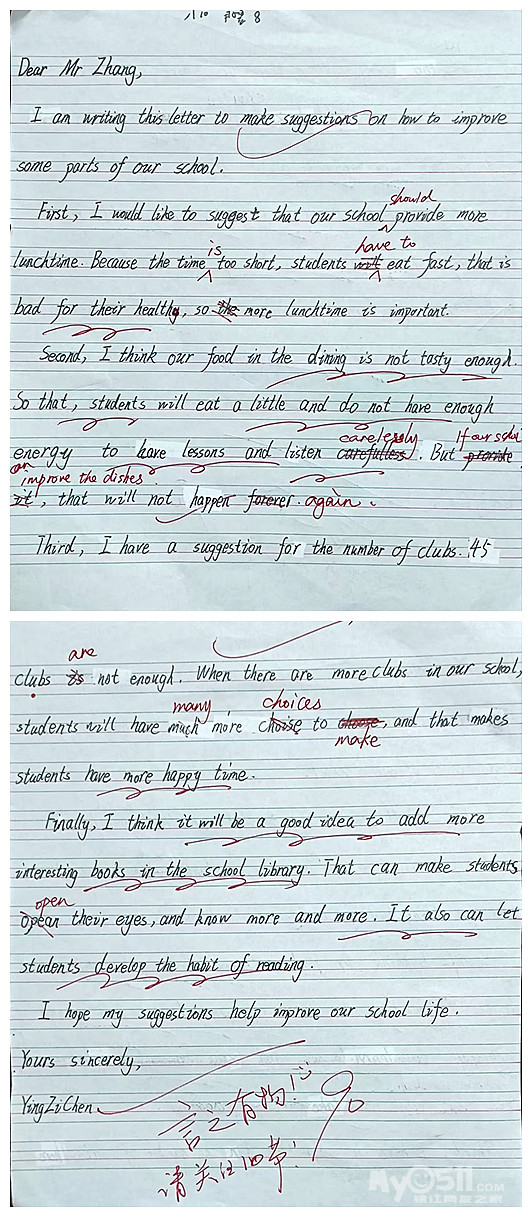 Dear Mr Zhang,
I am writing this letter to make suggestions on how to improve
some parts of our school.
should
First, I would like to suggest that our school provide more
is have to
lunchtime. Because the time too short, students will eat fast, that is
bad for their health, so the more lunchtime is important.
Second, I think our food in the dining is not tasty enough.
So that, students will eat a little and do not have enough
carelessly If our school
energy to have lessons and listen carefulless. But provide
can improve the dishes.
it, that will not happen forever. again.
Third, I have a suggestion for the number of clubs. 45
are
clubs is not enough. When there are more clubs in our school,
many choices
students will have much more choise to choose, and that makes
make
students have more happy time.
Finally, I think it will be a good idea to add more
interesting books in the school library. That can make students
open
opean their eyes, and know more and more. It also can let
students develop the habit of reading.
I hope my suggestions help improve our school life.
Yours sincerely,
YingZiChen
言之有物!
请关注细节!
My0511.COM